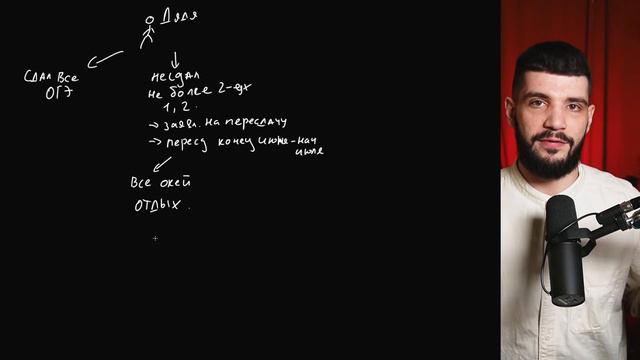 Дядя
Сдал все
ОГЭ
не сдал
не более 2-ух
1, 2.
→ заявл. на пересдачу
→ пересд конец июня-нач
июля
Все окей
ОТДЫХ.